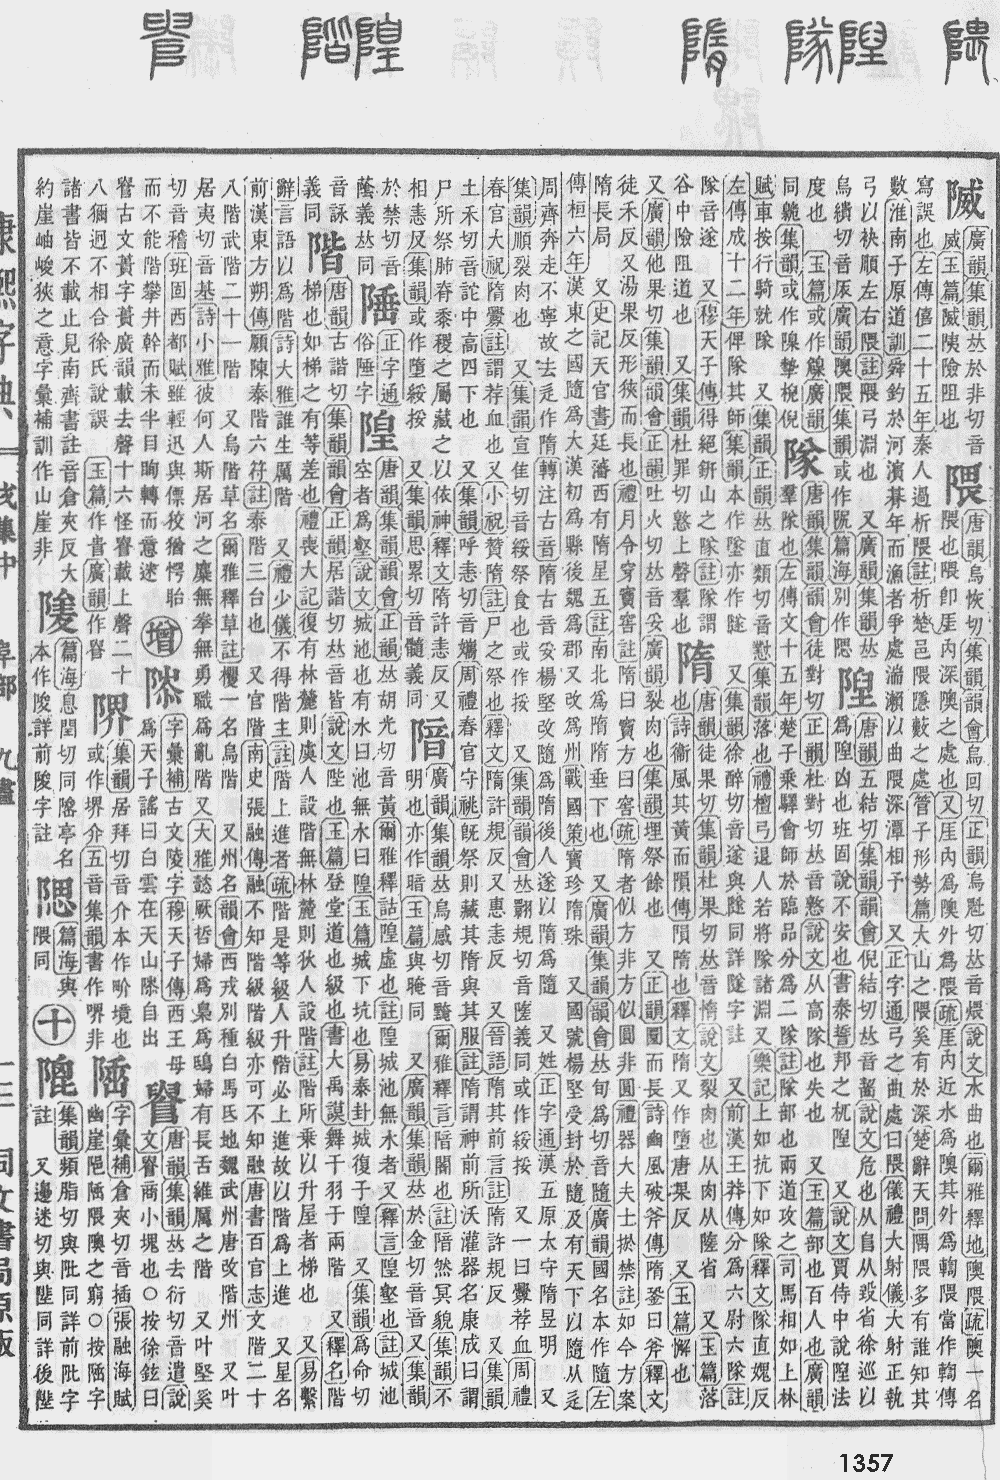 隇廣韻集韻𠀤於非切音隈唐韻烏恢切集韻韻會烏回切正韻烏魁切𠀤音煨說文水曲也爾雅釋地隩隈疏隩一名
威玉篇隇陓險阻也隈也隈卽厓內深隩之處也又厓內爲隩外爲隈疏厓內近水爲隩其外爲鞫隈當作鞫傳
寫誤也左傳僖二十五年秦人過析隈註析楚邑隈隱蔽之處管子形勢篇大山之隈奚有於深楚辭天問隅隈多有誰知其
數淮南子原道訓舜釣於河濱朞年而漁者爭處湍瀨以曲隈深潭相予又正字通弓之曲處曰隈儀禮大射儀大射正執
弓以袂順左右隈註隈弓淵也又廣韻集韻𠀤隉唐韻五結切集韻韻會倪結切𠀤音齧說文危也从𨸏从毀省徐巡以
烏繢切音𠩳廣韻隩隈集韻或作𨹟篇海別作隁爲隉凶也班固說不安也書泰誓邦之杌隉又說文賈侍中說隉法
度也玉篇或作𨻄廣韻隊唐韻集韻韻會徒對切正韻杜對切𠀤音憝說文从高隊也失也又玉篇部也百人也廣韻
同臲集韻或作隉㙯梲倪羣隊也左傳文十五年楚子乘驛會師於臨品分爲二隊註隊部也兩道攻之司馬相如上林
賦車按行騎就隊又集韻正韻𠀤直類切音懟集韻落也禮檀弓退人若將隊諸淵又樂記上如抗下如隊釋文隊直媿反
左傳成十二年俾隊其師集韻本作墜亦作隧又集韻徐醉切音遂與隧同詳隧字註又前漢王莽傳分爲六尉六隊註
隊音遂又穆天子傳得絕鈃山之隊註隊謂隋唐韻徒果切集韻杜果切𠀤音惰說文裂肉也从肉从隓省又玉篇落
谷中險阻道也又集韻杜罪切憝上聲羣也也詩衞風其黃而隕傳隕隋也釋文隋又作墮唐果反又玉篇懈也
又廣韻他果切集韻韻會正韻吐火切𠀤音妥廣韻裂肉也集韻埋祭餘也又正韻圜而長詩豳風破斧傳隋銎曰斧釋文
徒禾反又湯果反形狹而長也禮月令穿竇窖註隋曰竇方曰窖疏隋者似方非方似圓非圓禮器大夫士棜禁註如今方案
隋長局又史記天官書廷藩西有隋星五註南北爲隋隋垂下也又廣韻集韻韻會𠀤旬爲切音隨廣韻國名本作隨左
傳桓六年漢東之國隨爲大漢初爲縣後魏爲郡又改爲州戰國策寶珍隋珠又國號楊堅受封於隨及有天下以隨从辵
周齊奔走不寧故去辵作隋轉注古音隋古音妥楊堅改隨爲隋後人遂以隋爲隨又姓正字通漢五原太守隋昱明又
集韻順裂肉也又集韻宣隹切音綏祭食也或作挼又集韻韻會𠀤翾規切音隳義同或作綏挼又一曰釁荐血周禮
春官大祝隋釁註謂荐血也又小祝贊隋註尸之祭也釋文隋許規反又惠恚反又晉語隋其前言註隋許規反又集韻
土禾切音詑中高四下也又集韻呼恚切音孈周禮春官守祧旣祭則藏其隋與其服註隋謂神前所沃灌器名康成曰謂
尸所祭肺脊黍稷之屬藏之以依神釋文隋許恚反又㖶廣韻集韻𠀤烏感切音黯爾雅釋言陪闇也註陪然冥貌集韻不
相恚反集韻或作墮綏挼又集韻思累切音髓義同明也亦作暗玉篇與晻同又廣韻集韻𠀤於金切音音又集韻
於禁切音隀正字通隍唐韻集韻韻會正韻𠀤胡光切音黃爾雅釋詁隍虛也註隍城池無水者又釋言隍壑也註城池
蔭義𠀤同俗陲字空者爲壑說文城池也有水曰池無水曰隍玉篇城下坑也易泰卦城復于隍又集韻爲命切
音詠階唐韻古諧切集韻韻會正韻居諧切𠀤音皆說文陛也玉篇登堂道也級也書大禹謨舞干羽于兩階又釋名階
義同梯也如梯之有等差也禮喪大記復有林麓則虞人設階無林麓則狄人設階註階所乗以升屋者梯也又易繫
辭言語以爲階詩大雅誰生厲階又禮少儀不得階主註階上進者疏階是等級人升階必上進故以階爲上進又星名
前漢東方朔傳願陳泰階六符註泰階三台也又官階南史張融傳融不知階級階級亦可不知融唐書百官志文階二十
八階武階二十一階又烏階草名爾雅釋草註欔一名烏階又州名韻會西戎別種白馬氐地魏武州唐改階州又叶
居夷切音基詩小雅彼何人斯居河之麋無拳無勇職爲亂階又大雅懿厥哲婦爲梟爲鴟婦有長舌維厲之階又叶堅奚
切音稽班固西都賦雖輕迅與僄狡猶愕眙增隊字彙補古文陵字穆天子傳西王母䝿唐韻集韻𠀤去衍切音遣說
而不能階攀井幹而未半目眴轉而意迷爲天子謠曰白雲在天山隊自出文䝿商小塊也〇按徐鉉曰
䝿古文蕢字蕢廣韻載去聲十六怪䝿載上聲二十𨺬集韻居拜切音介本作畍境也隀字彙補倉夾切音插張融海賦
八獮迥不相合徐氏說誤玉篇作𠳋廣韻作䝿或作堺介五音集韻書作堺非幽崖隀陋隈隩之窮〇按隀字
諸書皆不載止見南齊書註音倉夾反大𨺿篇海息閏切同陖亭名隠篇海與十𨺙集韻頻脂切與阰同詳前阰字
約崖岫峻狹之意字彙補訓作山崖非本作陖詳前陵字註隈同註又邊迷切與陛同詳後陛
康熙字典
戌集中
阜部
九畫
一三
同文書局原版
1357